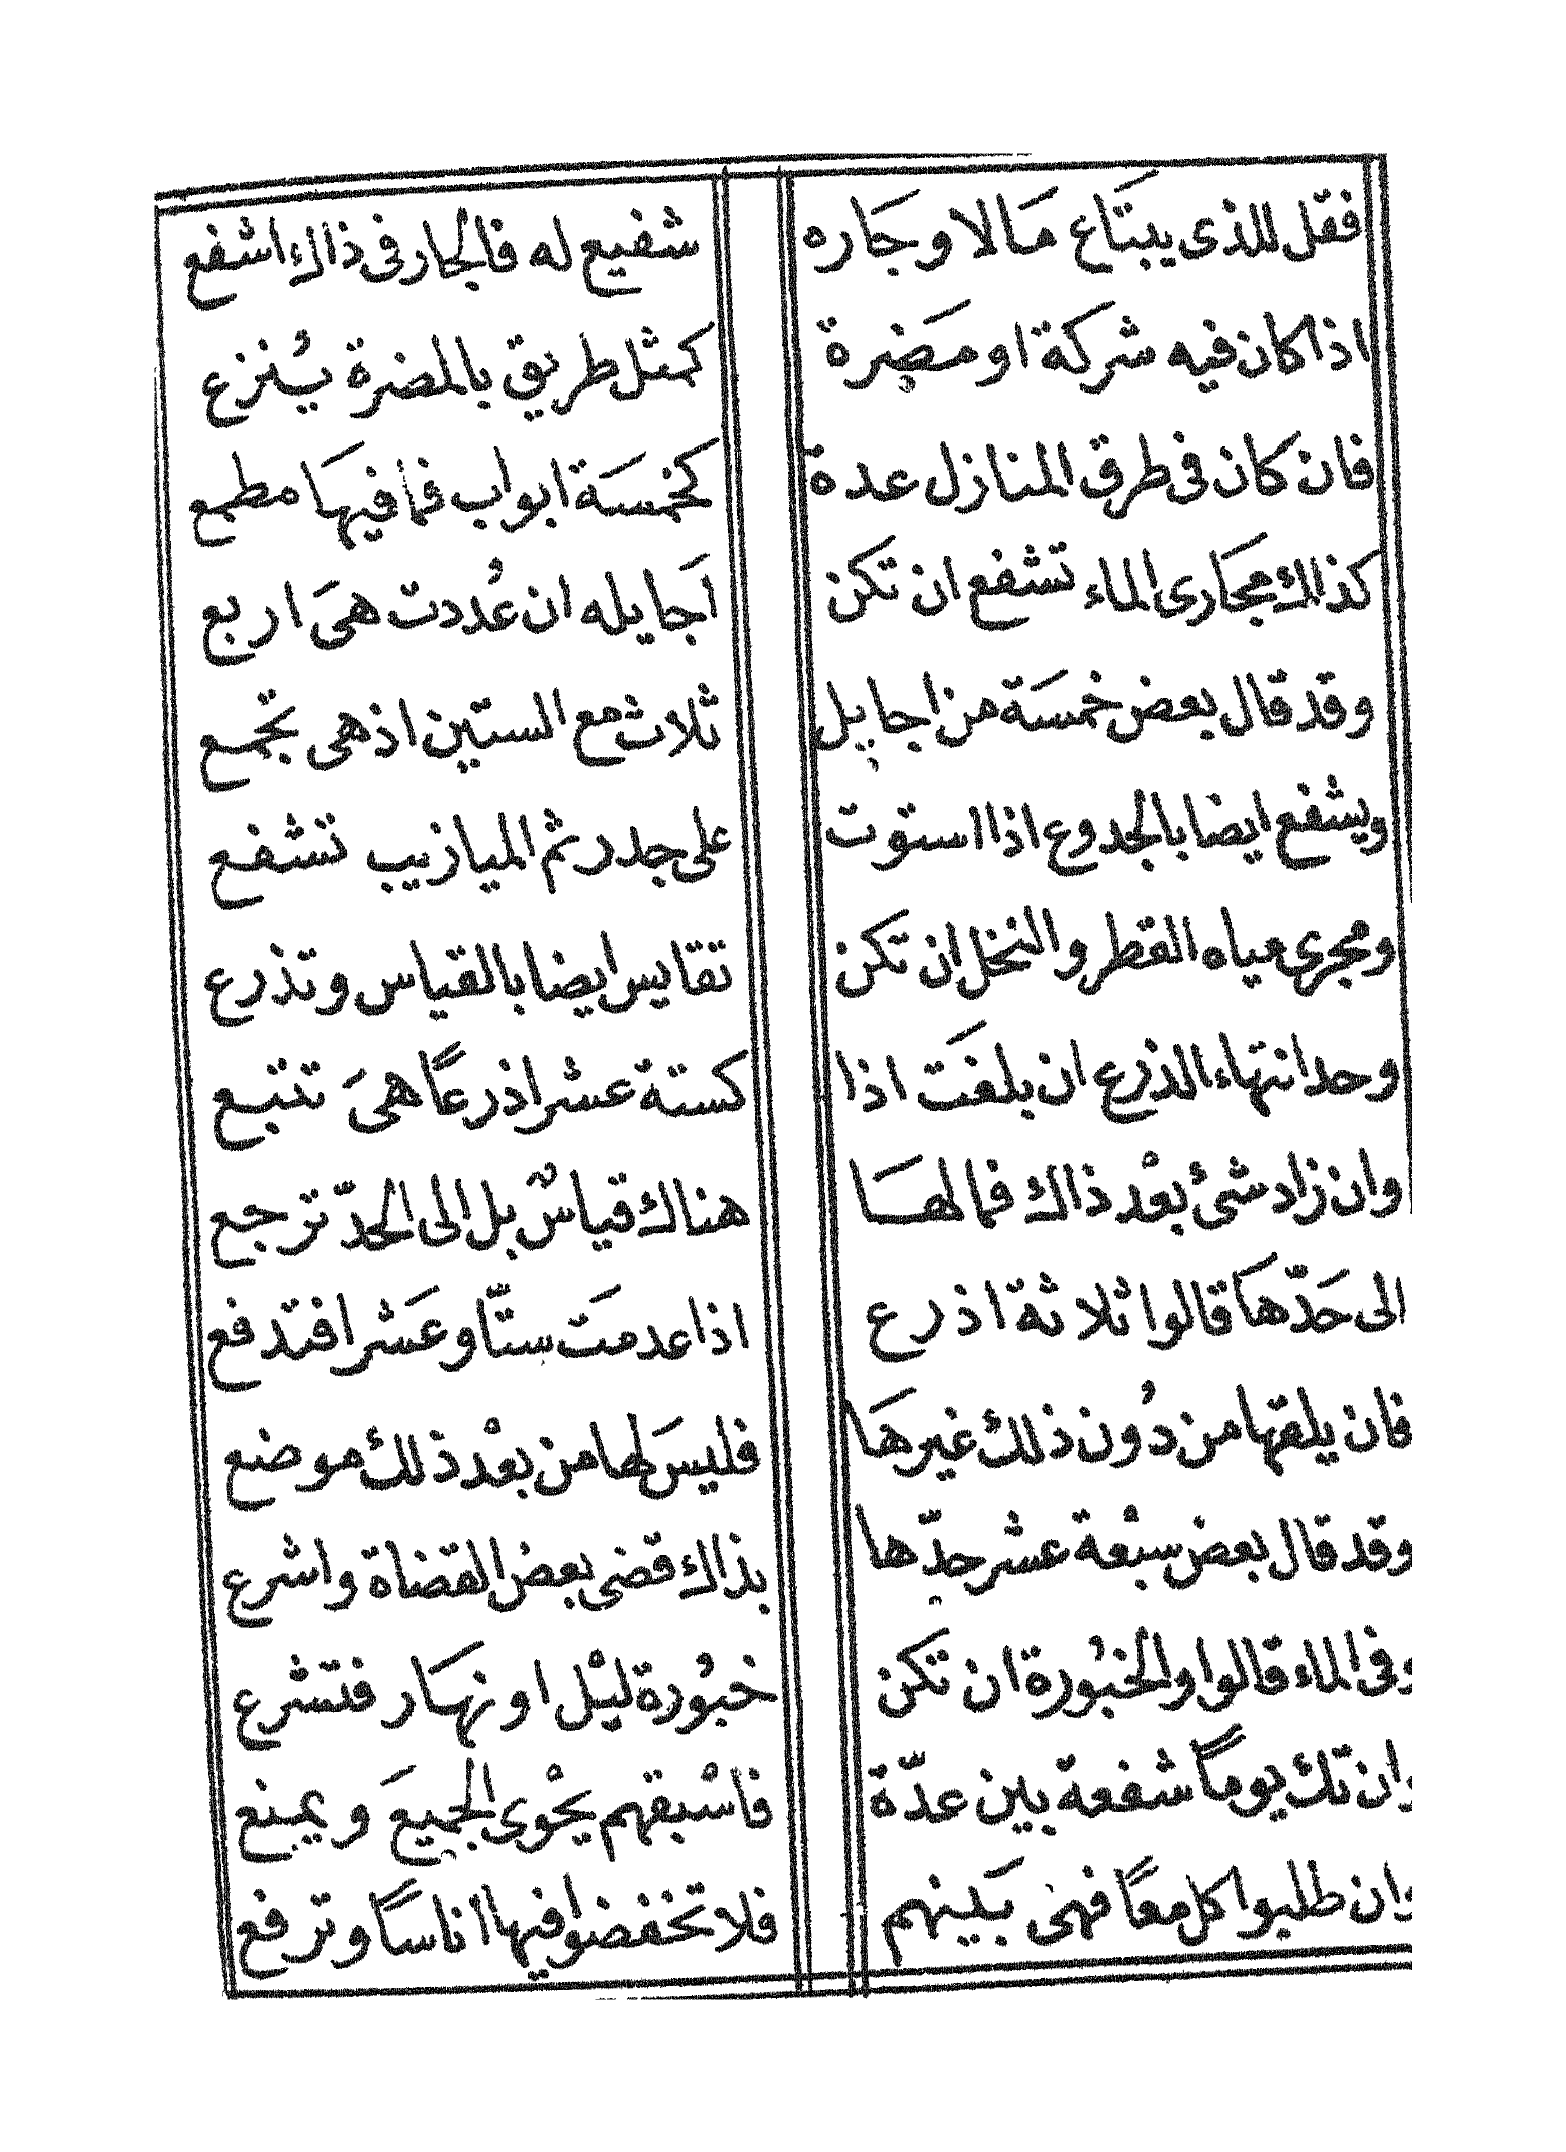 فقل للذى يبتَاع مَالا وجَاره شفيع له فالجار فى ذاك اشفع
اذا كان فيه شركة او مَضرة كمثل طريق بالمضرة يُنزع
فان كان فى طرق المنازل عدة كخمسَة ابواب فما فيهَا مطمع
كذاك مجَارى الماء تشفع ان تكن اَجايله ان عُددت هىَ اربع
وقد قال بعض خمسَة من اجايل ثلاث مع الستين اذ هى تجمع
ويشفع ايضا بالجدوع اذا استوت على جدر ثم الميازيب تشفع
ومجرى مياه القطر والنخل ان تكن تقايس ايضا بالقياس وتذرع
وحد انتهاء الذرع ان بلغَت اذا كستة عشر اذرعًا هىَ تتبع
وان زاد شئ بعْد ذاك فما لهَا هناك قياسٌ بل الى الحدّ ترجع
الى حَدّهَا قالوا ثلاثة اذرع اذا عدمَت ستّا وعَشرا فتدفع
فان يلقها من دُون ذلك غيرهَا فليسَ لها من بعْد ذلك موضع
وقد قال بعض سبْعة عشر حدّها بذاك قضى بعض القضاة واشرع
وفى الماء قالوا والخبُورة ان تكن خبُورة ليْل او نهَار فتشرع
وان تك يومًا شفعة بين عدّة فاسْبقهم يحْوى الجميعَ ويمنع
وان طلبوا كل معًا فهى بَينهم فلا تخفضوا فيها اناسًا وترفع